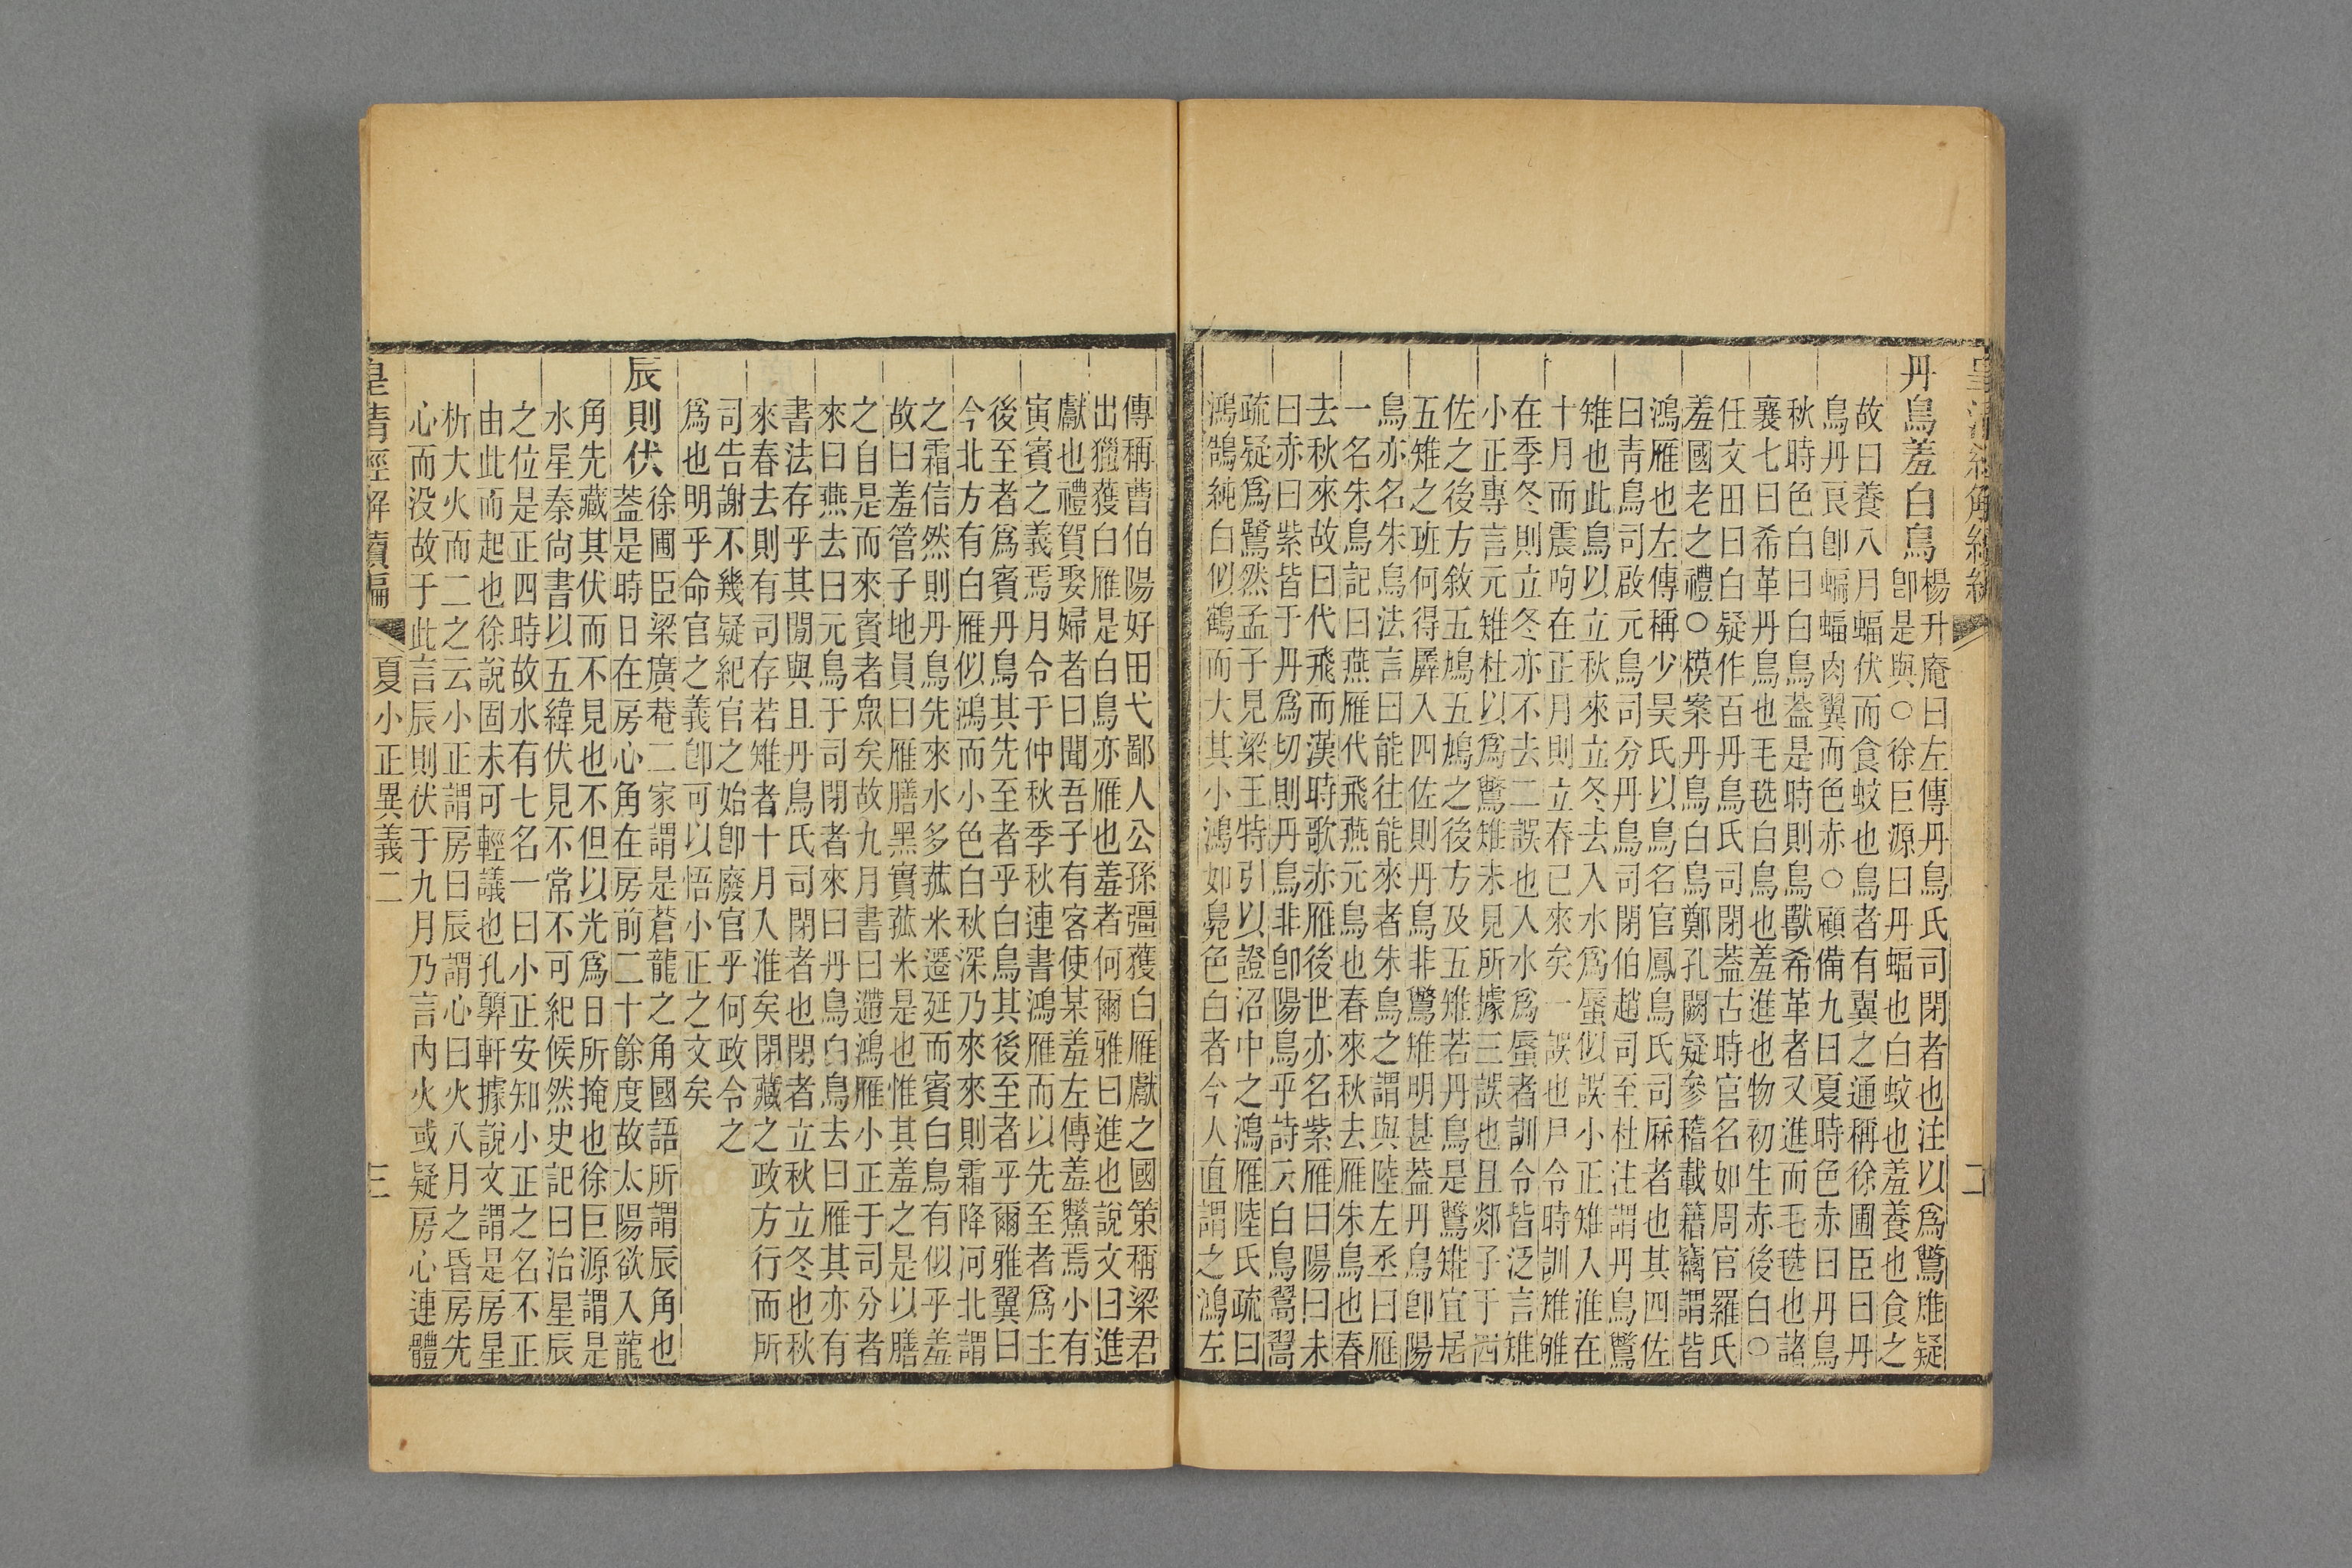 丹鳥羞白鳥
楊升庵曰左傳丹鳥氏司閉者也注以爲鷩雉疑
卽是與○徐巨源曰丹蝠也白蚊也羞養也食之
故曰養八月蝠伏而食蚊也鳥者有翼之通稱徐圃臣曰丹
鳥丹良卽蝙蝠肉翼而色赤○顧備九曰夏時色赤曰丹鳥
秋時色白曰白鳥葢是時則鳥獸希革者又進而毛毨也諸
襄七曰希革丹鳥也毛毨白鳥也羞進也物初生赤後白○
任文田曰白疑作百丹鳥氏司閉葢古時官名如周官羅氏
羞國老之禮○模案丹鳥白鳥鄭孔闕疑參稽載籍竊謂皆
鴻雁也左傳稱少昊氏以鳥名官鳳鳥氏司厤者也其四佐
曰靑鳥司啟元鳥司分丹鳥司閉伯趙司至杜注謂丹鳥鷩
雉也此鳥以立秋來立冬去入水爲蜃似誤小正雉入淮在
十月而震呴在正月則立春已來矣一誤也月令時訓雉雊
在季冬則立冬亦不去二誤也入水爲蜃者訓令皆泛言雉
小正專言元雉杜以爲鷩雉未見所據三誤也且郯子于四
佐之後方敘五鳩五鳩之後方及五雉若丹鳥是鷩雉宜居
五雉之班何得羼入四佐則丹鳥非鷩雉明甚葢丹鳥卽陽
鳥亦名朱鳥法言曰能往能來者朱鳥之謂與陸左丞曰雁
一名朱鳥記曰燕雁代飛燕元鳥也春來秋去雁朱鳥也春
去秋來故曰代飛而漢時歌赤雁後世亦名紫雁曰陽曰朱
曰赤曰紫皆于丹爲切則丹鳥非卽陽鳥乎詩云白鳥翯翯
疏疑爲鷺然孟子見梁王特引以證沼中之鴻雁陸氏疏曰
鴻鵠純白似鶴而大其小鴻如鳧色白者今人直謂之鴻左
傳稱曹伯陽好田弋鄙人公孫彊獲白雁獻之國策稱梁君
出獵獲白雁是白鳥亦雁也羞者何爾雅曰進也說文曰進
獻也禮賀娶婦者曰聞吾子有客使某羞左傳羞鱉焉小有
寅賓之義焉月令于仲秋季秋連書鴻雁而以先至者爲主
後至者爲賓丹鳥其先至者乎白鳥其後至者乎爾雅翼曰
今北方有白雁似鴻而小色白秋深乃來來則霜降河北謂
之霜信然則丹鳥先來水多菰米遷延而賓白鳥有似乎羞
故曰羞管子地員曰雁膳黑實菰米是也惟其羞之是以膳
之自是而來賓者眾矣故九月書曰遰鴻雁小正于司分者
來曰燕去曰元鳥于司閉者來曰丹鳥白鳥去曰雁其亦有
書法存乎其閒與且丹鳥氏司閉者也閉者立秋立冬也秋
來春去則有司存若雉者十月入淮矣閉藏之政方行而所
司告謝不幾疑紀官之始卽廢官乎何政令之
爲也明乎命官之義卽可以悟小正之文矣
辰則伏
徐圃臣梁廣菴二家謂是蒼龍之角國語所謂辰角也
葢是時日在房心角在房前二十餘度故太陽欲入龍
角先藏其伏而不見也不但以光爲日所掩也徐巨源謂是
水星秦尚書以五緯伏見不常不可紀候然史記曰治星辰
之位是正四時故水有七名一曰小正安知小正之名不正
由此而起也徐說固未可輕議也孔㢲軒據說文謂是房星
析大火而二之云小正謂房曰辰謂心曰火八月之昏房先
心而没故于此言辰則伏于九月乃言內火或疑房心連體
皇清經解續編
夏小正異義二
三